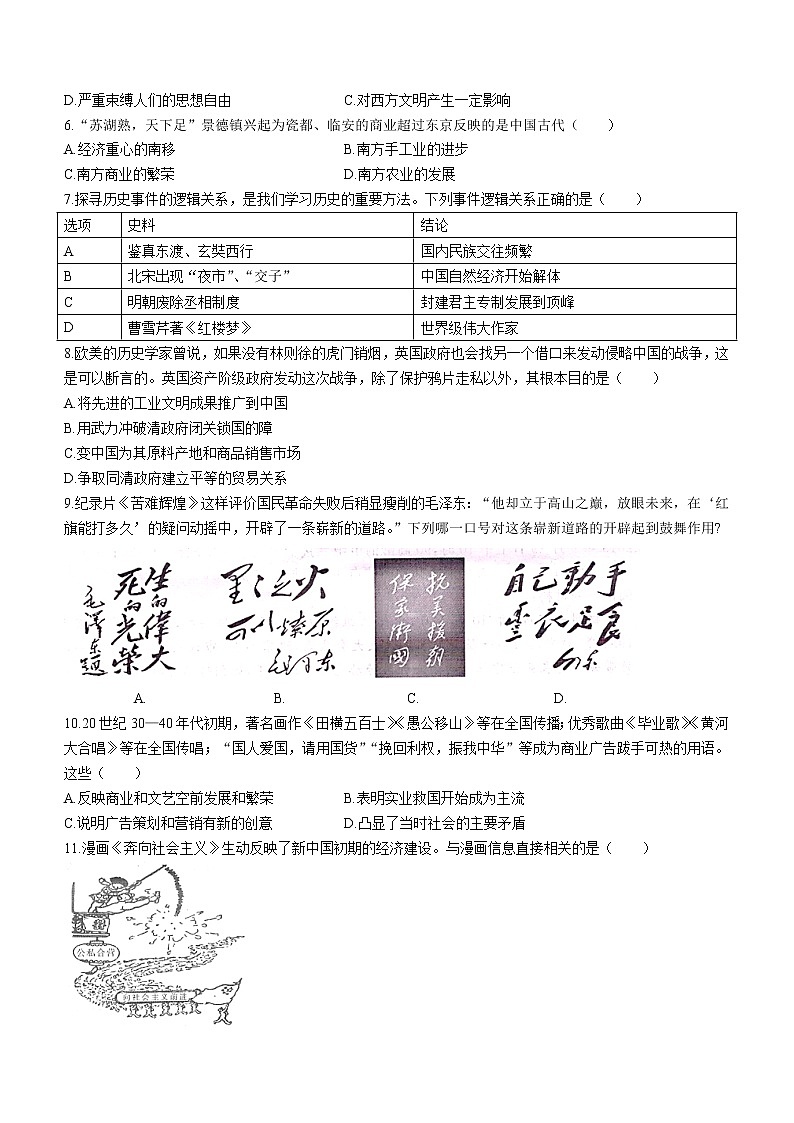 D.严重束缚人们的思想自由 C.对西方文明产生一定影响
6.“苏湖熟，天下足”景德镇兴起为瓷都、临安的商业超过东京反映的是中国古代（ ）
A.经济重心的南移 B.南方手工业的进步
C.南方商业的繁荣 D.南方农业的发展
7.探寻历史事件的逻辑关系，是我们学习历史的重要方法。下列事件逻辑关系正确的是（ ）
选项 史料 结论
A 鉴真东渡、玄奘西行 国内民族交往频繁
B 北宋出现“夜市”、“交子” 中国自然经济开始解体
C 明朝废除丞相制度 封建君主专制发展到顶峰
D 曹雪芹著《红楼梦》 世界级伟大作家
8.欧美的历史学家曾说，如果没有林则徐的虎门销烟，英国政府也会找另一个借口来发动侵略中国的战争，这
是可以断言的。英国资产阶级政府发动这次战争，除了保护鸦片走私以外，其根本目的是（ ）
A.将先进的工业文明成果推广到中国
B.用武力冲破清政府闭关锁国的障
C.变中国为其原料产地和商品销售市场
D.争取同清政府建立平等的贸易关系
9.纪录片《苦难辉煌》这样评价国民革命失败后稍显瘦削的毛泽东：“他却立于高山之巅，放眼未来，在‘红
旗能打多久’的疑问动摇中，开辟了一条崭新的道路。”下列哪一口号对这条崭新道路的开辟起到鼓舞作用?
生的偉大
死的光榮
毛澤东題
星星之火
可以燎原
毛泽东
抗美援朝
保家衛國
自己動手
豐衣足食
A. B. C. D.
10.20世纪30—40年代初期，著名画作《田横五百士》《愚公移山》等在全国传播；优秀歌曲《毕业歌》《黄河
大合唱》等在全国传唱；“国人爱国，请用国货”“挽回利权，振我中华”等成为商业广告跋手可热的用语。
这些（ ）
A.反映商业和文艺空前发展和繁荣 B.表明实业救国开始成为主流
C.说明广告策划和营销有新的创意 D.凸显了当时社会的主要矛盾
11.漫画《奔向社会主义》生动反映了新中国初期的经济建设。与漫画信息直接相关的是（ ）
公私合营
向社会主义前进